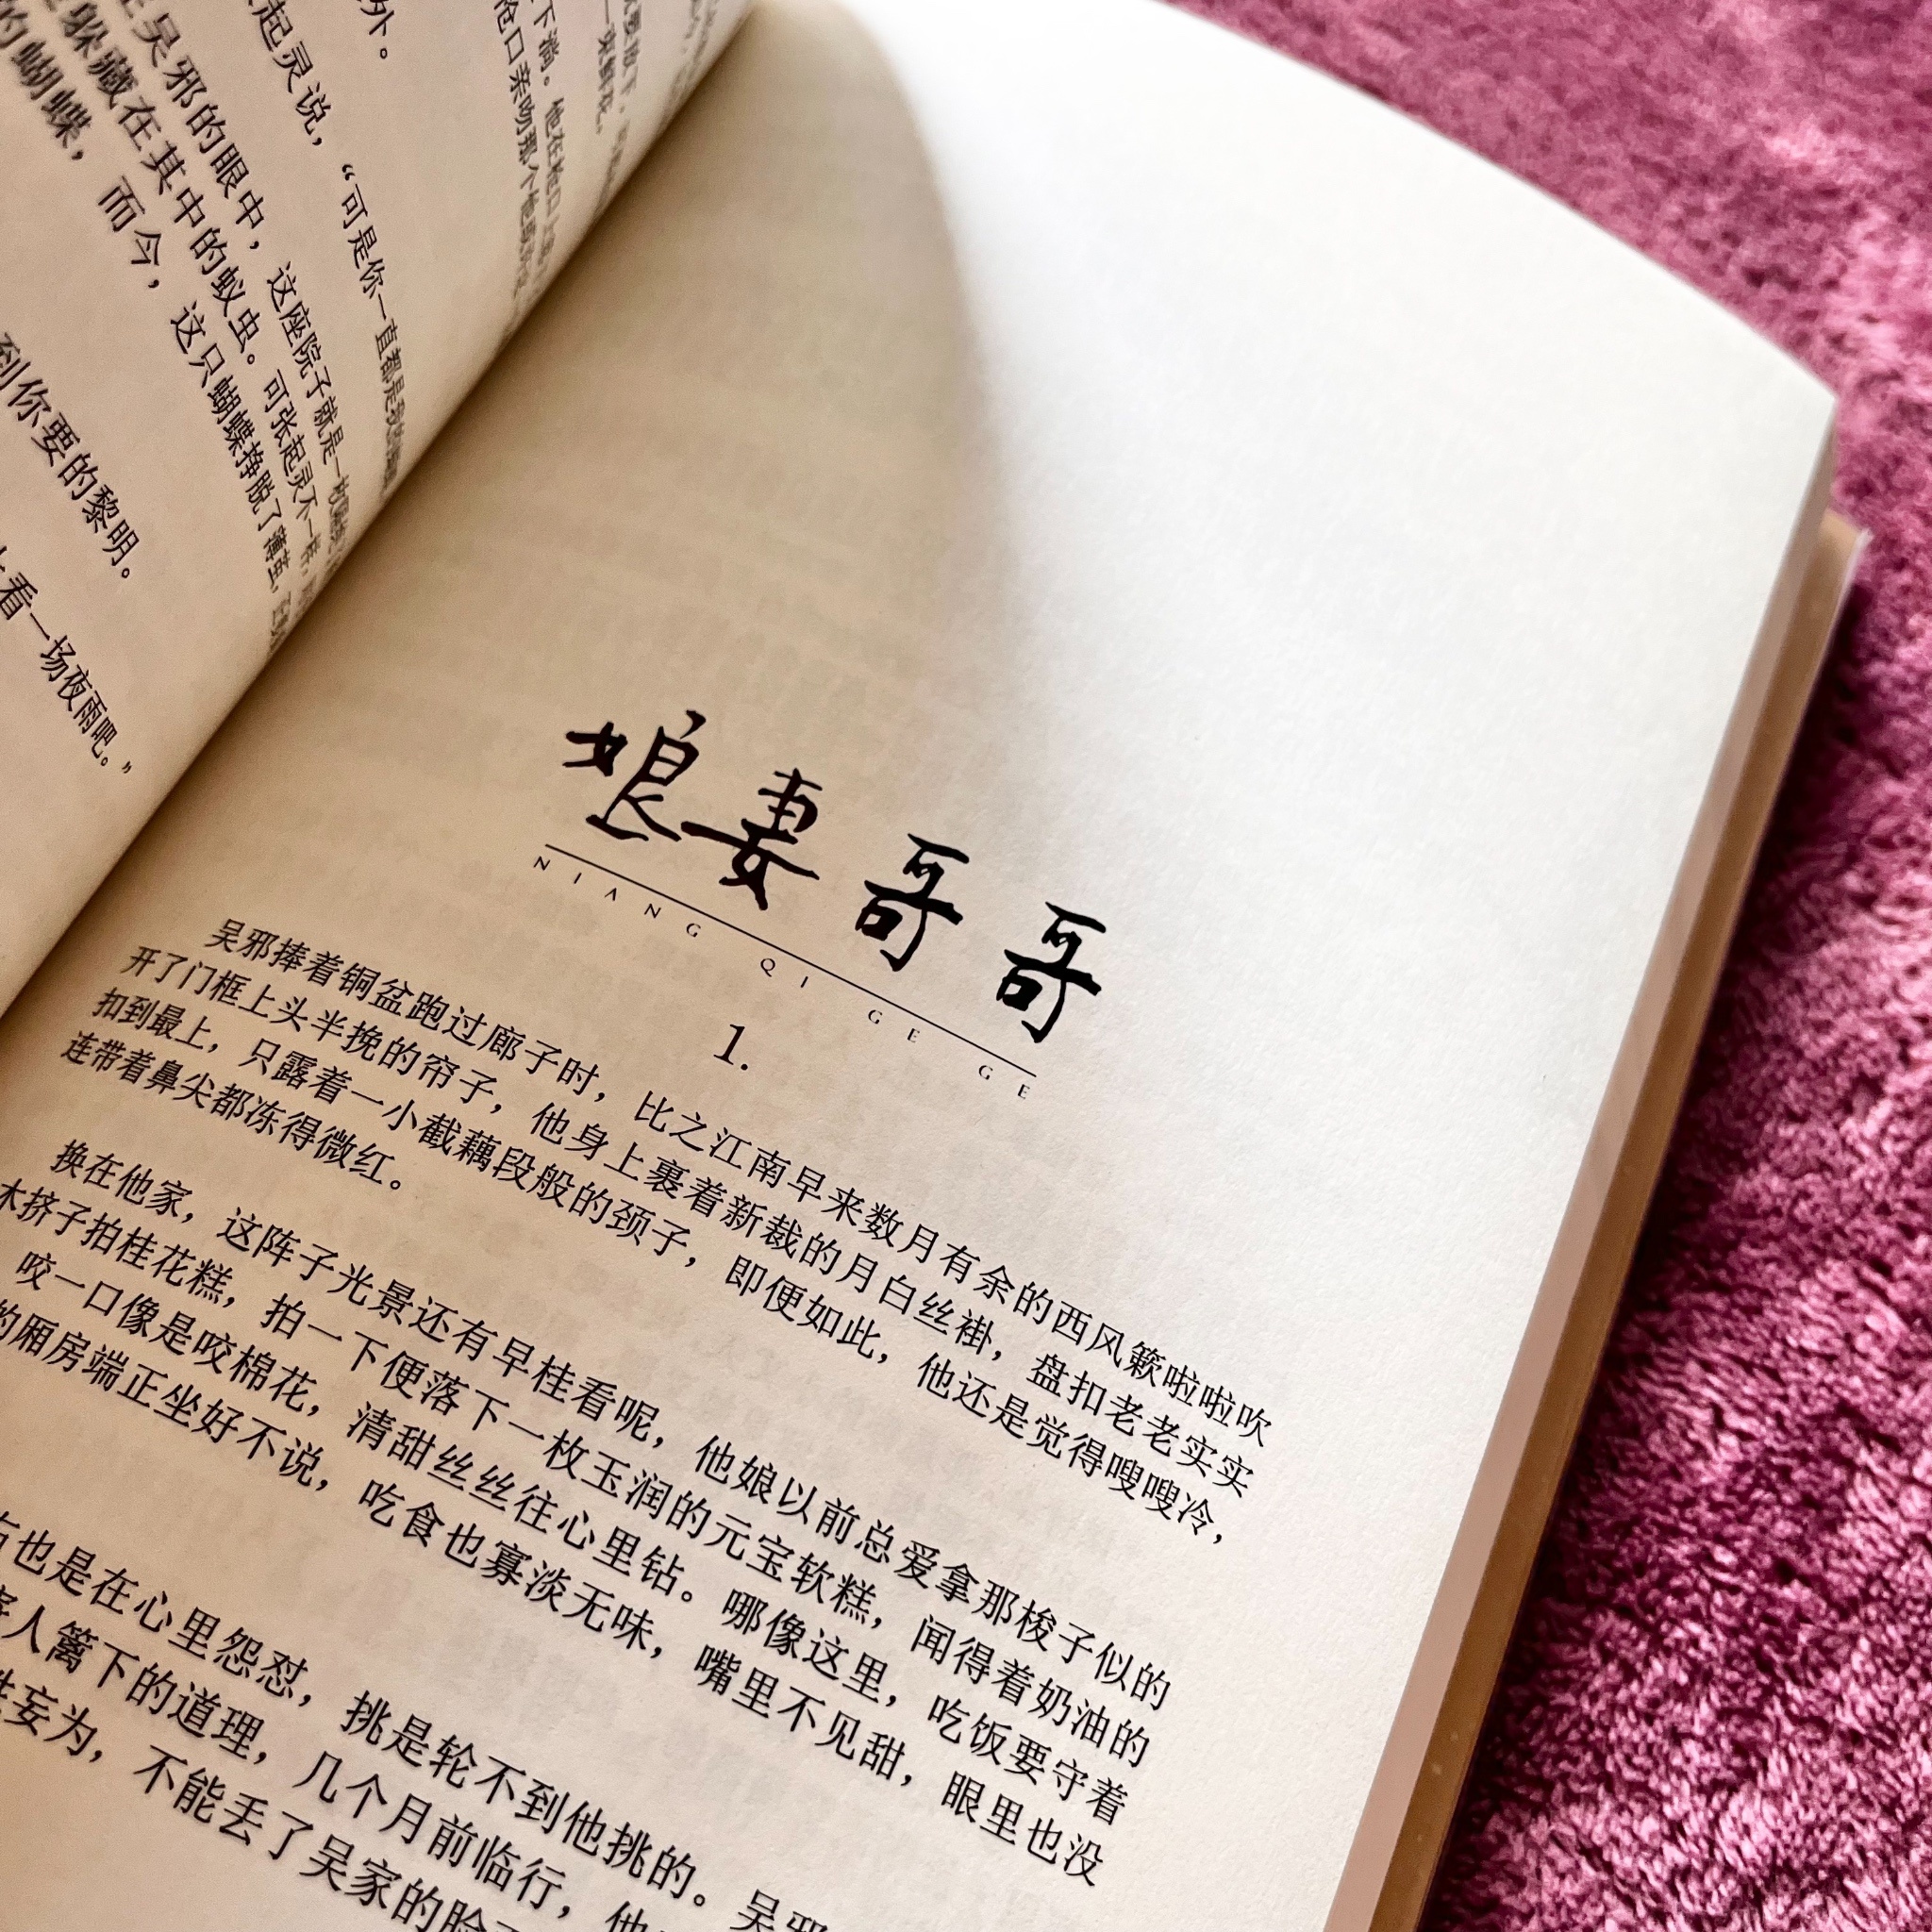 外。
起灵说，“可是你一直都是我的
吴邪的眼中，这座院子就是一
躲藏在其中的蚁虫。可张起灵不一样，
的蝴蝶，而今，这只蝴蝶挣脱了
到你要的黎明。
看一场夜雨吧。”
下淌。他在枪口上
枪口亲吻那个他
娘妻哥哥
NIANG QI GE GE
1.
吴邪捧着铜盆跑过廊子时，比之江南早来数月有余的西风簌啦啦吹
开了门框上头半挽的帘子，他身上裹着新裁的月白丝褂，盘扣老老实实
扣到最上，只露着一小截藕段般的颈子，即便如此，他还是觉得嗖嗖冷，
连带着鼻尖都冻得微红。
换在他家，这阵子光景还有早桂看呢，他娘以前总爱拿那梭子似的
木挤子拍桂花糕，拍一下便落下一枚玉润的元宝软糕，闻得着奶油的
咬一口像是咬棉花，清甜丝丝往心里钻。哪像这里，吃饭要守着
的厢房端正坐好不说，吃食也寡淡无味，嘴里不见甜，眼里也没
也是在心里怨怼，挑是轮不到他挑的。吴邪
人篱下的道理，几个月前临行，他
妄为，不能丢了吴家的脸